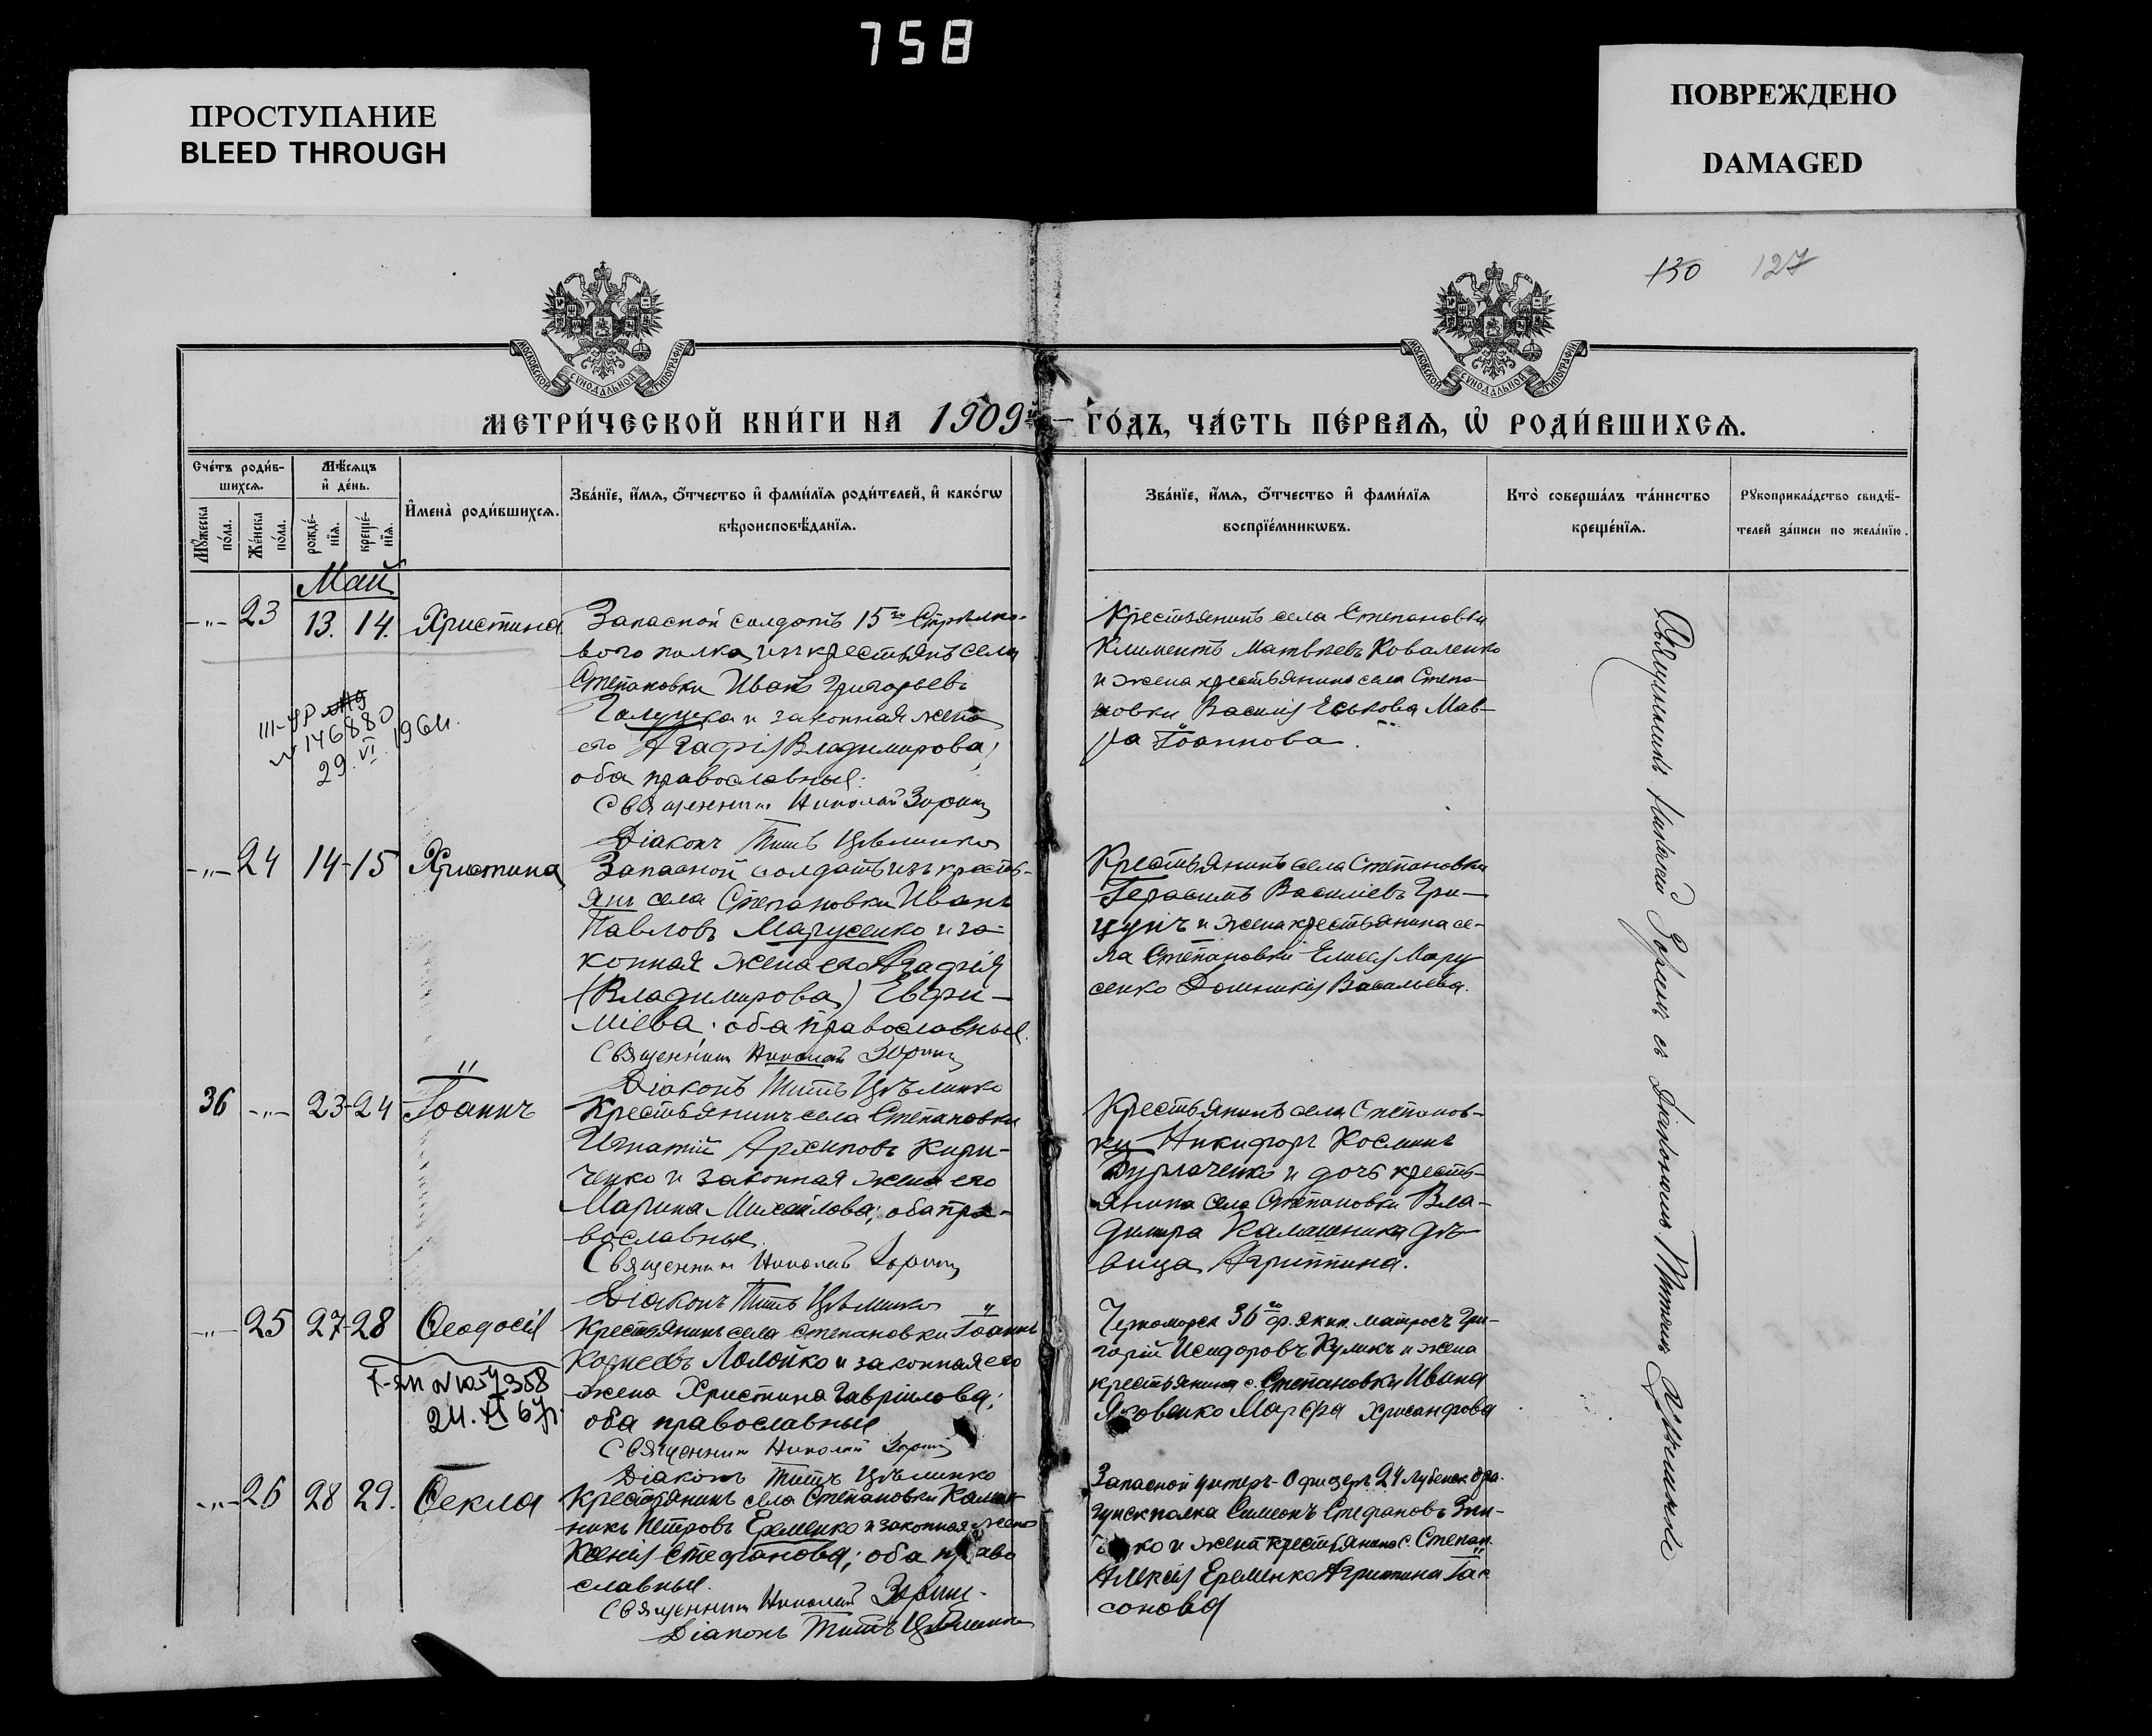 758
ПРОСТУПАНИЕ
BLEED THROUGH
ПОВРЕЖДЕНО
DAMAGED
130 127
МОСКОВСКОЙ СѴНОДАЛЬНОЙ ТИПОГРАФІИ
МОСКОВСКОЙ СѴНОДАЛЬНОЙ ТИПОГРАФІИ
МЕТРИ́ЧЕСКОЙ КНИ́ГИ НА 1909й
ГО́ДЪ, ЧА́СТЬ ПЕ́РВАѦ, Ѡ҆ РОДИ́ВШИХСѦ.
Сче́тъ роди́в-
шихсѧ.
Мѣ́сѧцъ
и҆ де́нь.
Мꙋ́жеска по́ла.
Же́нска по́ла.
рожде́-
нїѧ.
креще́-
нїѧ.
И҆мена̀ роди́вшихсѧ.
Зва́нїе, и҆́мѧ, ѻ҆́тчество и҆ фами́лїѧ роди́телей, и҆ како́гѡ
вѣроисповѣ́данїѧ.
Зва́нїе, и҆́мѧ, ѻ҆́тчество и҆ фами́лїѧ
воспрїе́мникѡвъ.
Кто̀ соверша́лъ та́инство
креще́нїѧ.
Рꙋкоприкла́дство свидѣ́-
телей за́писи по жела́нїю.
Май
-„- 23 13. 14. Христина
Запасной солдатъ 15го Стрѣлко-
вого полка, изъ крестьянъ села
Степановки Иванъ Григорьевъ
и законная жена
его Агафія Владимирова;
оба православные.
Священникъ Николай Зоринъ
Діаконъ Титъ Цѣлинко
Крестьянинъ села Степановки
Климентъ Матвѣевъ Коваленко
и жена крестьянина села Степа-
новки Василія Еськова Мав-
ра Іоаннова.
III-УР
№ 14688
29. VI. 1964.
-„- 24 14-15 Христина
Запасной солдатъ изъ кресть-
янъ села Степановки Иванъ
Павловъ Марусенко и за-
конная жена его Агафія
(Владимирова) Евфи-
міева; оба православные.
Священникъ Николай Зоринъ
Діаконъ Титъ Цѣлинко
Крестьянинъ села Степановки
Герасимъ Василіевъ Гри-
цунъ и жена крестьянина се-
ла Степановки Елисея Мару-
сенко Домникія Васильева.
36 -„- 23-24 Іоаннъ
Крестьянинъ села Степановки
Игнатій Архиповъ Кири-
ченко и законная жена его
Марина Михайлова; оба пра-
вославные.
Священникъ Николай Зоринъ
Діаконъ Титъ Цѣлинко
Крестьянинъ села Степанов-
ки Никифоръ Косминъ
Бурлаченко и дочь кресть-
янина села Степановки Вла-
димира Калашника дѣ-
вица Агриппина.
-„- 25 27-28 Ѳеодосія
Крестьянинъ села Степановки Іоаннъ
Корнеевъ Ломойко и законная его
жена Христина Гавріилова;
оба православные
Священникъ Николай Зоринъ
Діаконъ Титъ Цѣлинко
Черноморск 36го ф. экип. матросъ Гри-
горій Исидоровъ Куликъ и жена
крестьянина с. Степановки Ивана
Яковенко Марфа Хрисанфова
358
24. XI 67г.
-„- 26 28 29. Ѳекла
Крестьянинъ села Степановки
Петровъ Еременко и законная жена
Ксенія Стефанова; оба право
славные.
Священникъ Николай Зоринъ.
Діаконъ Титъ Цѣлинко
Запасной унтеръ-Офицеръ 24 Лубенск дра-
гунск полка Симеонъ Стефановъ
ко и жена крестьянина с. Степан.
Алексія Еременко Агриппина Іас
сонова
Священникъ Николай Зоринъ съ Діакономъ Титомъ Цѣлинко